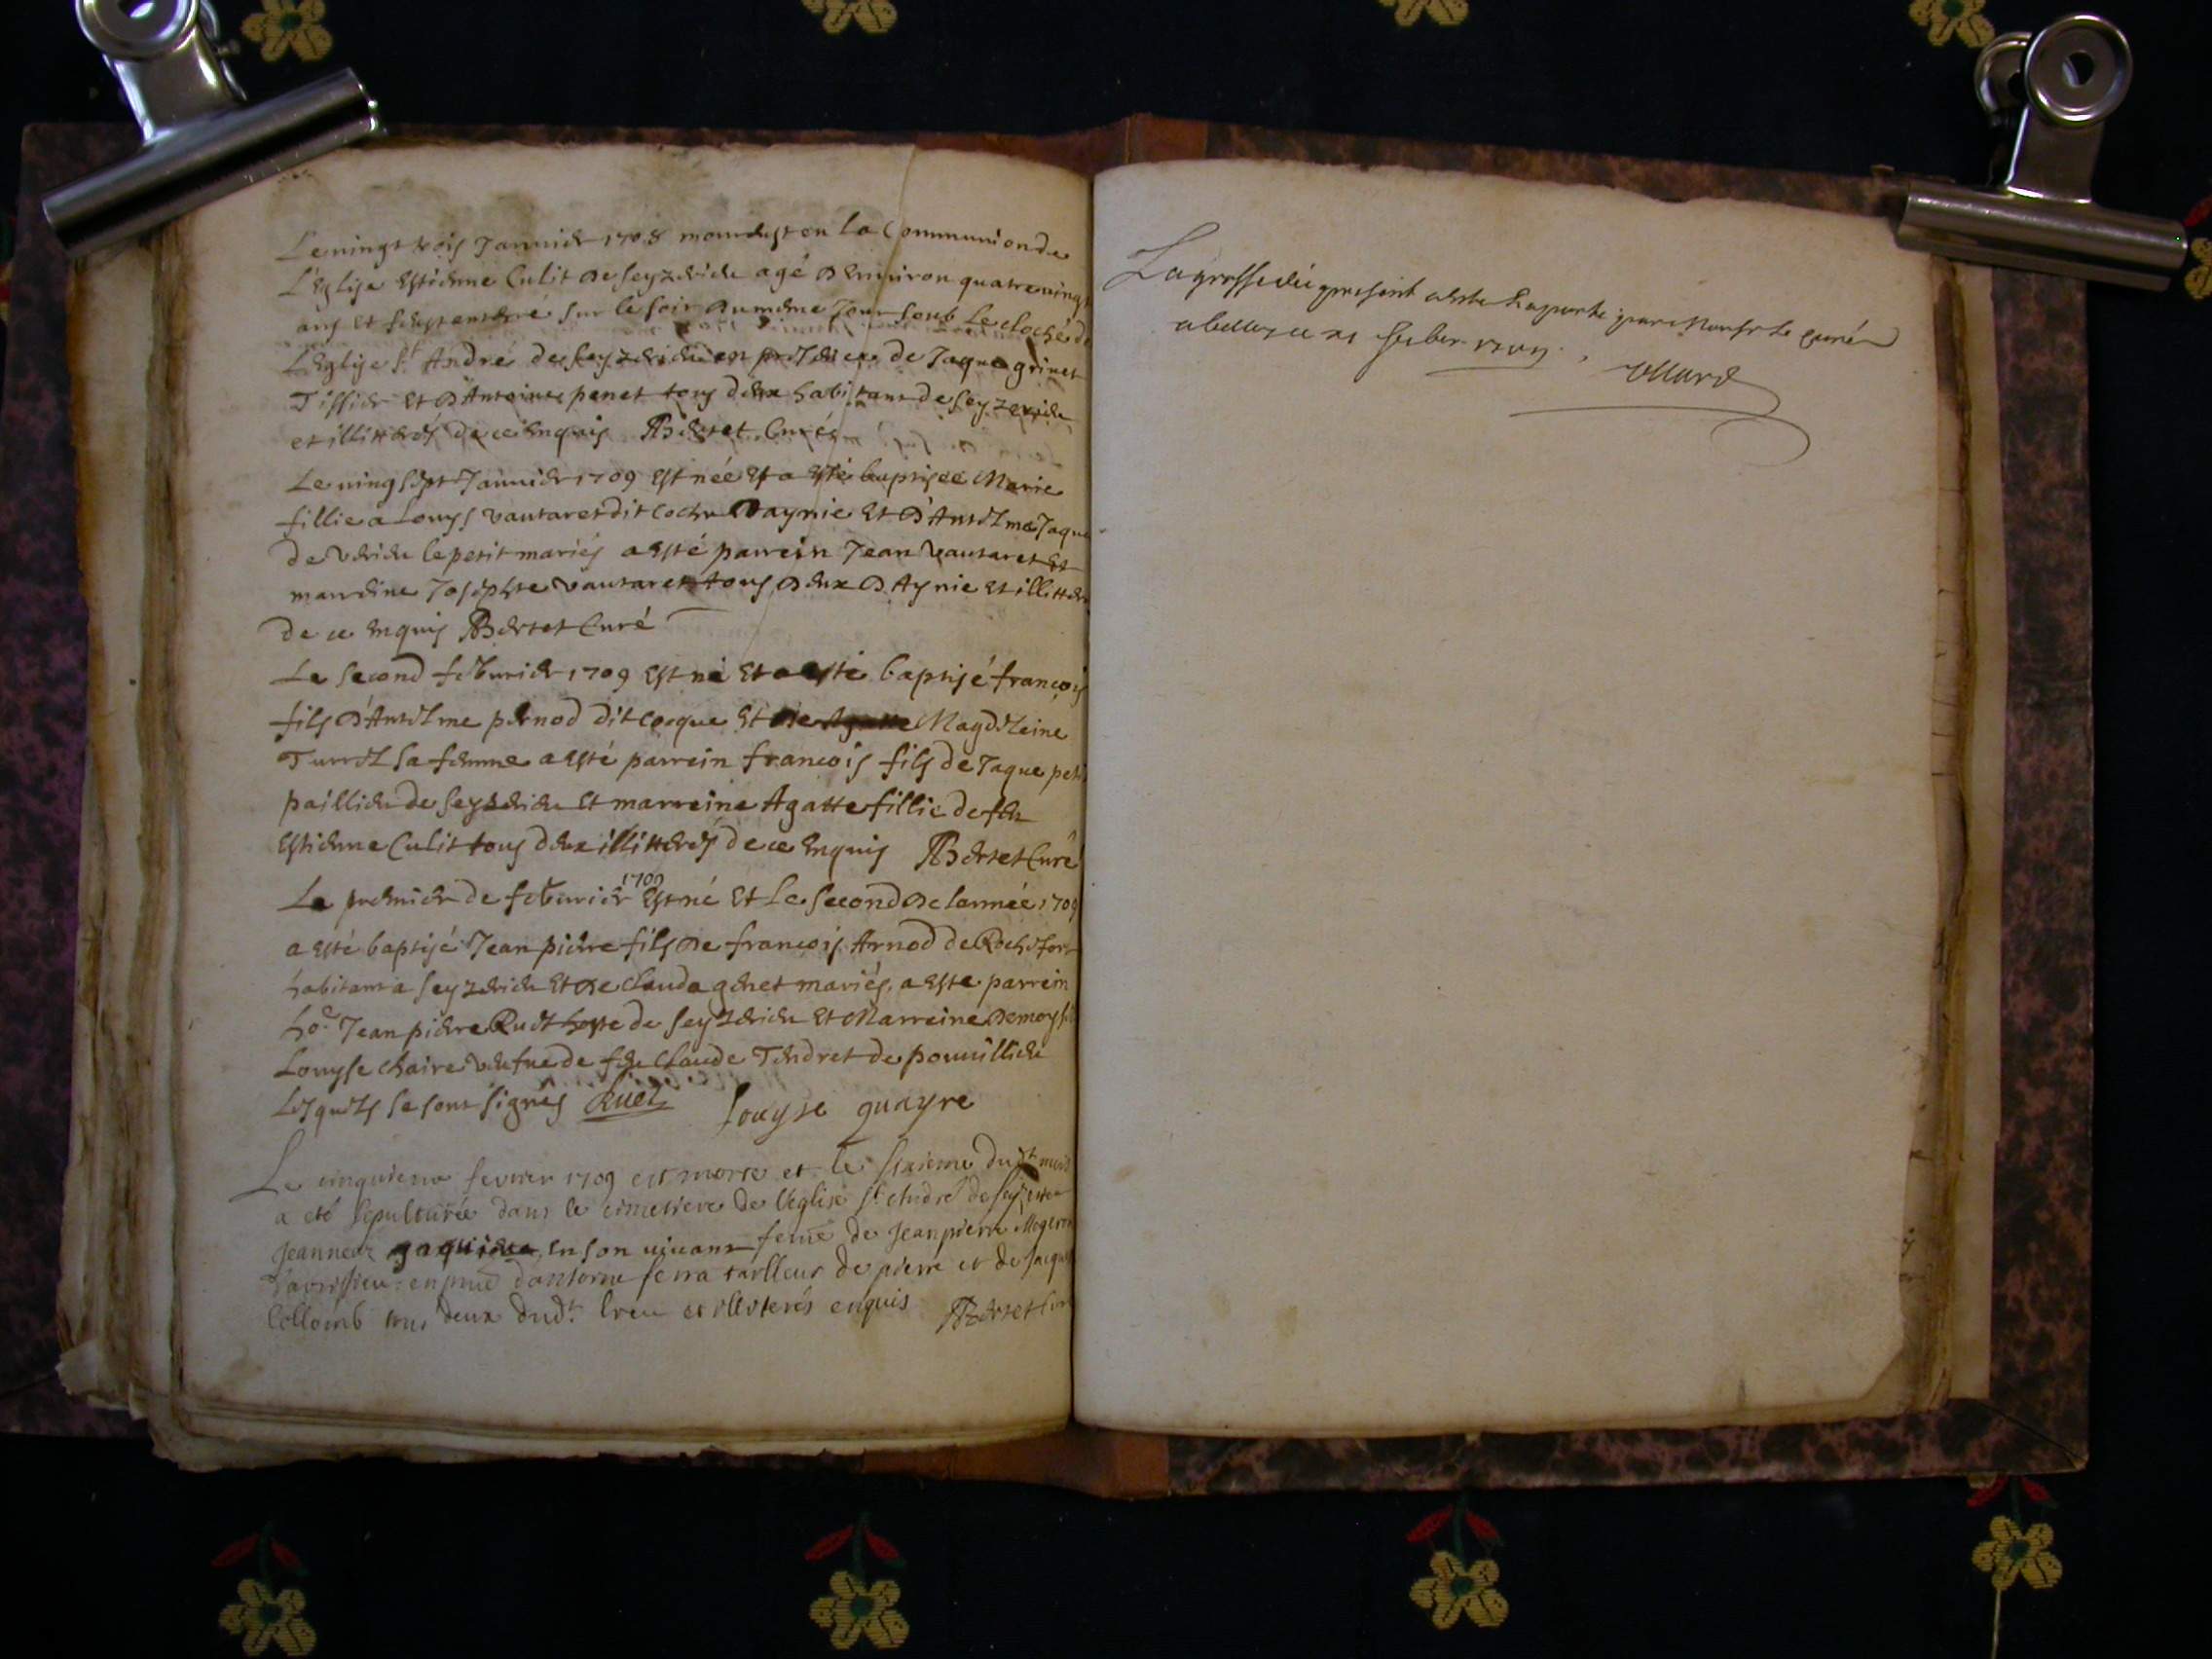 Le vingt trois Janvier 1708 mourust en la Communion de
L'Eglise Estienne Culit de Seyzerieu agé d'environ quatre vingt
ans et fust enterré sur le soir du mesme Jour soub le cloché de
L'Eglise St André de Seyzerieu en presence de Jaque grinet
Tissier et d'Antoine penet tous deux habitant de Seyzerieu
et illitterés de ce enquis Bertet Curé
Le ving sept Janvier 1709 est née et a esté baptisée Marie
fillie a Louys Vautaret dit coche d'aynie et d'Antelma Jaqu
de Verieu le petit mariés a esté parrein Jean Vautaret et
marrine Josephte Vautaret tous deux d'Aynie et illitter
de ce enquis Bertet Curé
Le second febvrier 1709 est né et a esté baptisé francois
fils d'Antelme pernod dit coque et de Magdeleine
Turrel sa femme a esté parrein francois fils de Jaque petit
paillieu de Seyzerieu et marreine Agatte fillie de feu
Estienne Culit tous deux illitterés de ce enquis Bertet Curé
Le premier de febvrier 1709 est né et le second de lannée 1709
a esté baptisé Jean pierre fils de francois Arnod de Rochefort
habitant a Seyzerieu et de Clauda genet mariés, a este parrein
ho. Jean pierre Ruet hoste de Seyzerieu et Marreine demoys
Louyse chaire veufue de feu Claude Tendret de pouuillieu
Lesquels se sont signés Ruet louyse quayre
Le cinquieme fevrier 1709 est morte et le sixieme dudt mois
a eté sepulturée dans le cimetiere de l'eglise st André de Seyzerieu
Jeannear en son vivant feme de Jean pierre Mogeron
d'avrissieu en pnce d'antoine serra tallieur de pierre et de Jacque
Collomb tous deux dudt lieu et illiterés enquis Bertet Cur
La grosse du present a este raporte par Monsr le curé
a belley ce 21